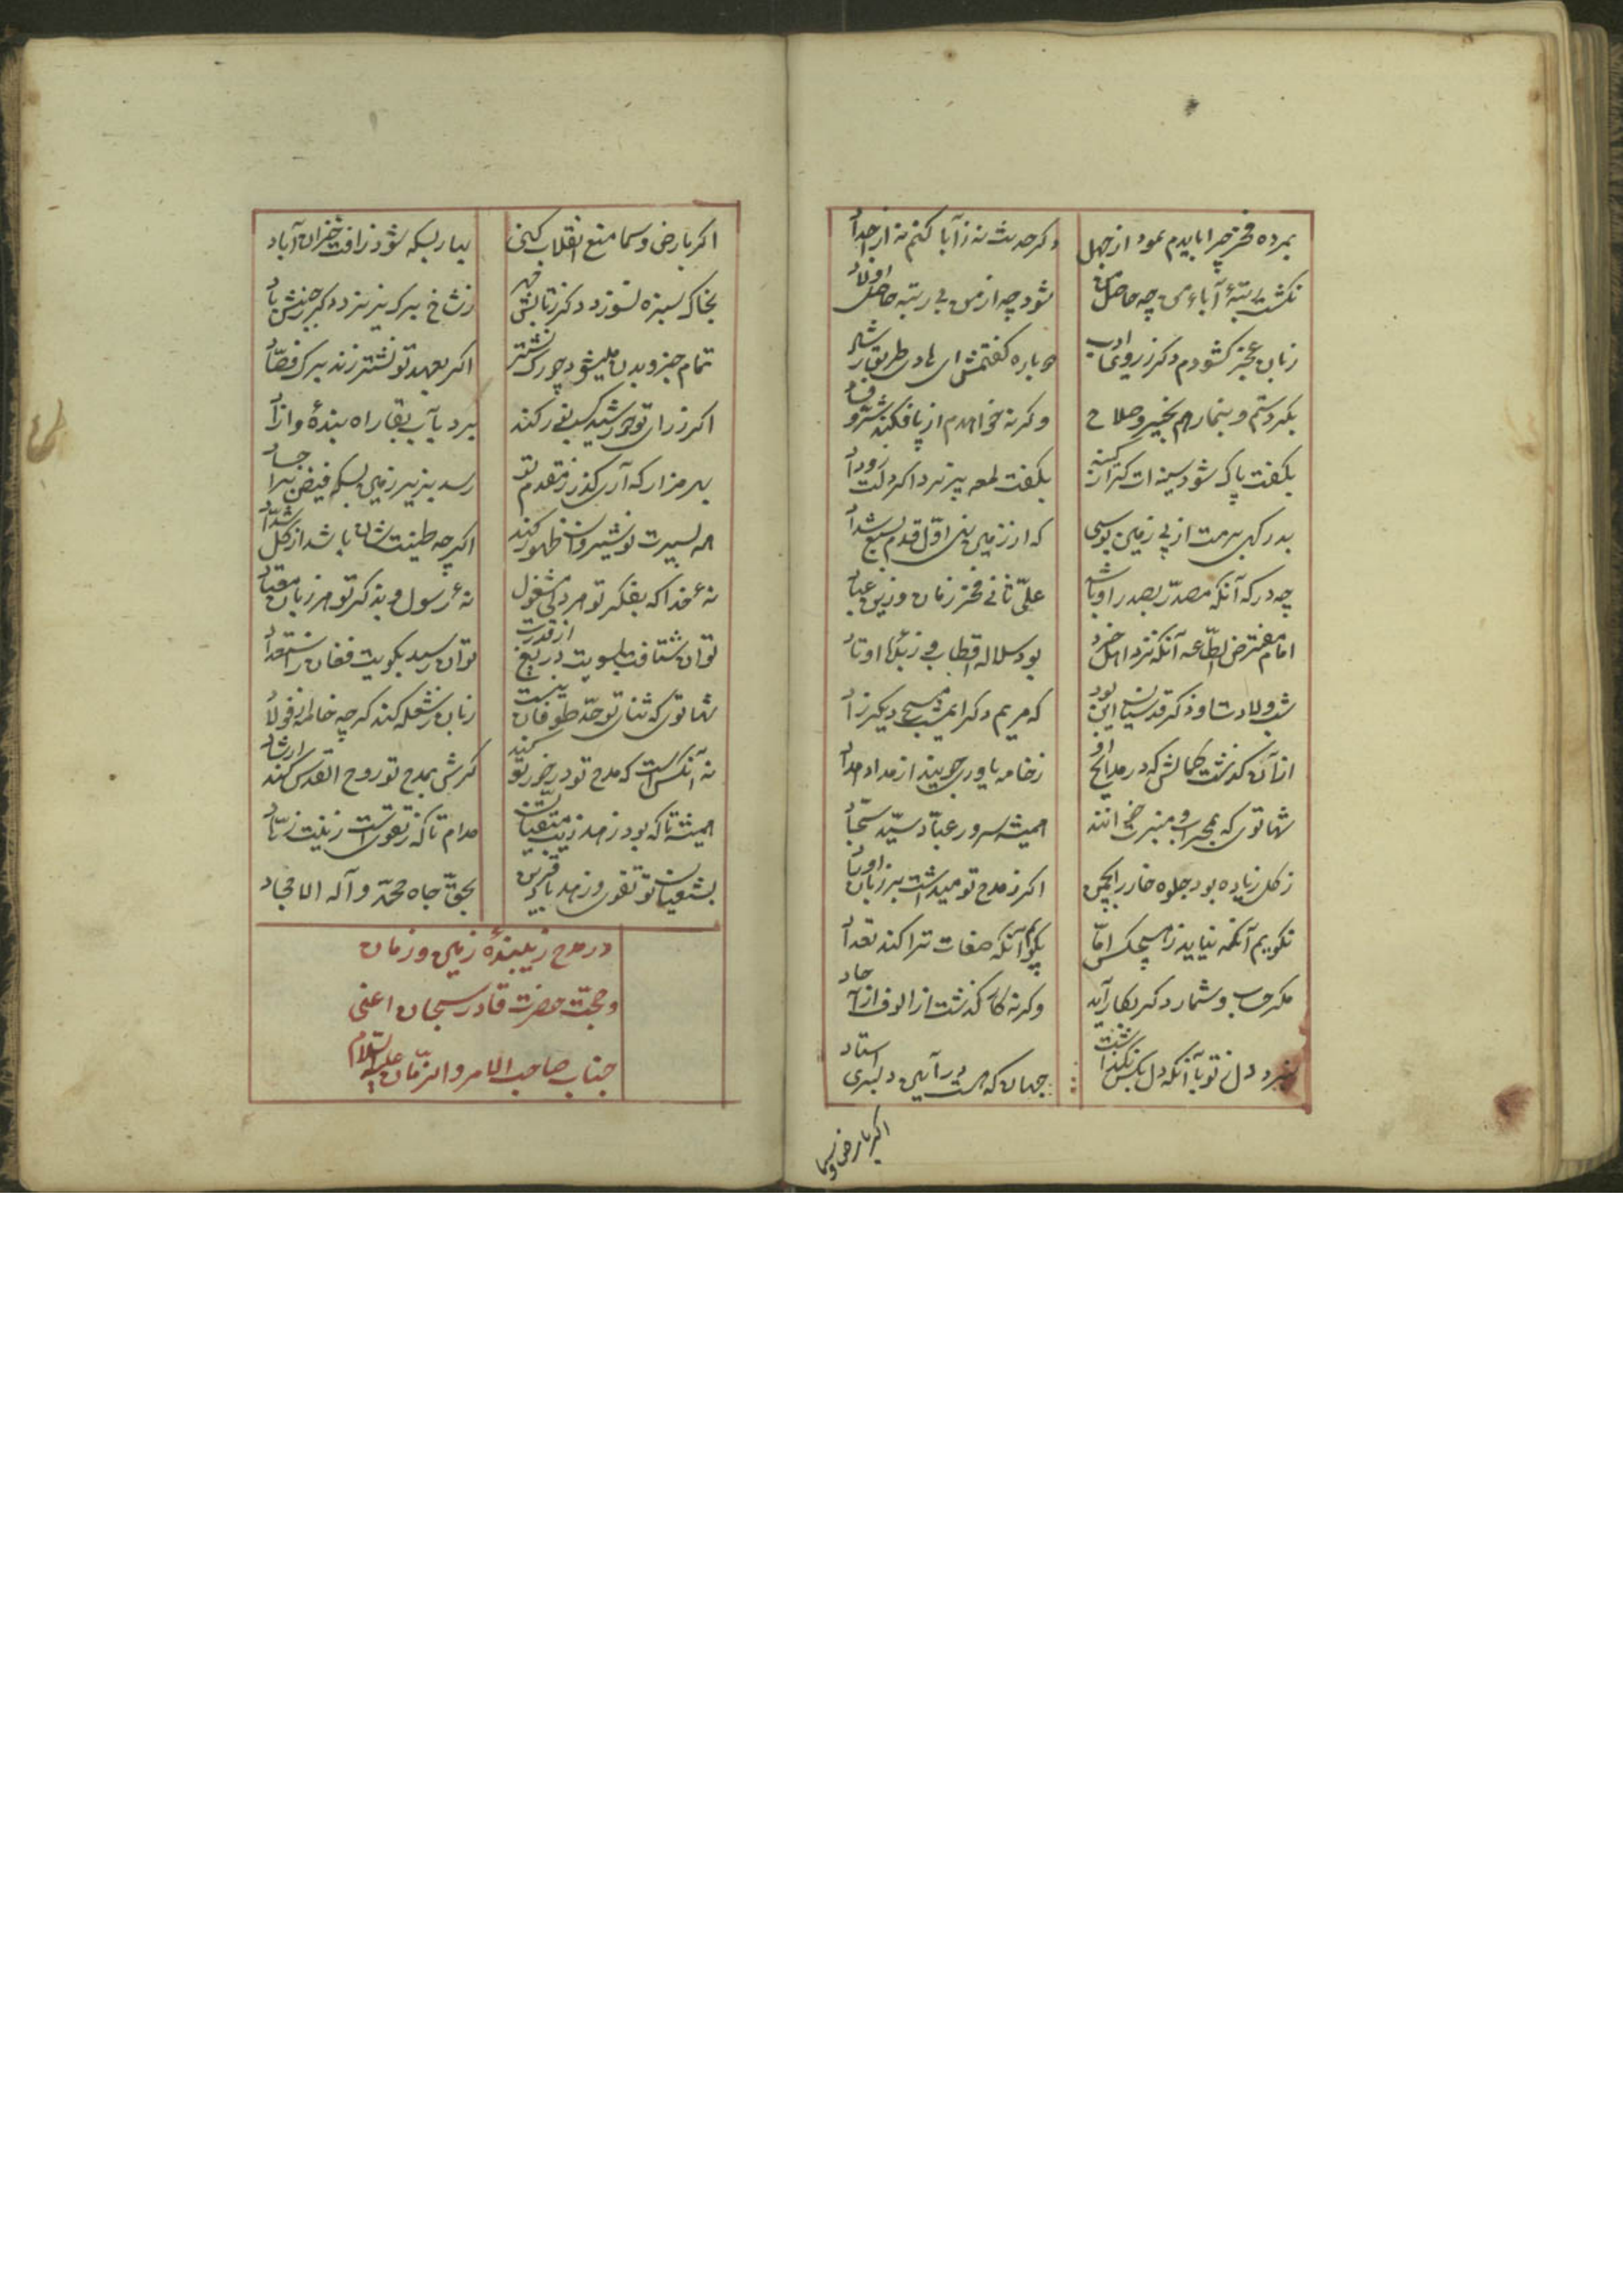 بمرده فخر چرا بایدم نمود از جهل
دکر حدیث نه ز آبا کنم نه از اجداد
نکشت رتبهٔ آباء من چه حاصل من
شود چه از من بی رتبه حاصل اولاد
زبان عجز کشودم دکر ز روی ادب
دوباره کفتمش ای هادی طریق رشاد
بکیر دستم و بنما رهم بخیر و صلاح
وکرنه خواهدم از پا فکند شر و فساد
بکفت پاک شود سینه ات کر از کینه
بکفت لمعه پذیرد اکر دلت ز وداد
بدرکهی برمت از پی زمین بوسی
که از زمین نهی اول قدم بسبع شداد
چه درکه آنکه مصدر بصدر او باشد
علی ثانی فخر زمان و زین عباد
امام مفترض الطاعه آنکه نزد اهل خرد
بود سلاله اقطاب و زبدهٔ اوتاد
شب ولادت او ذکر قدسیان این بود
که مریم دکر امشب مسیح دیکر زاد
از آن کذشت کمالش که در مدایح او
ز خامه یاوری جویند از مداد مداد
شها توی که بمحراب و منبرت خوانند
همیشه سرور عباد و سید سجاد
ز کل زیاده بود جلوه خار را بچمن
اکر ز مدح تو میداشت بر زبان اوراد
نکویم آنکه نیاید ز هیچکس اما
بکو بمن آنکه صفات ترا کند تعداد
مکر حساب و شمار دکر بکار آید
وکرنه کار کذشت از الوف و از آحاد
نبرد دل ز تو با آنکه دل بکس نکذاشت
جهان که هست در آیین دلبری استاد
اکر بارض و سما
اکر بارض و سما منع انقلاب کنی
بهار بسکه شود ز آفت خزان آباد
بخاک سبزه نسوزد دکر ز تابش مهر
ز شاخ برک نریزد دکر ز جنبش باد
تمام جزو بدن میشود چو رک نشتر
اکر بعهد تو نشتر زند برک فصاد
اکر ز رای تو خورشید کسب نور کند
برد بآب بقا راه بندهٔ و آزاد
بهر مزار که آری کذر ز مقدم تو
رسد بزیر زمین بسکه فیض بر اجساد
همه بسیرت نوشیروان ظهور کنند
اکرچه طینت شان باشد از کل شداد
نهٔ خدا که بفکر تو هر دلی مشغول
نهٔ رسول و بذکر تو هر زبان معتاد
توان شتافت بسویت دریغ از قدرت
توان رسید بکویت فغان ز استعداد
شها توی که ثنای تو حد طوفان نیست
زبان ز شعله کند کرچه خاطر از فولاد
نه آنکس است که مدح تو در خور تو کند
کرش بمدح تو روح القدس کند ارشاد
همیشه تا که بود زهد زیب متقیان
مدام تا که ز تقویست زینت زهاد
بشیعیان تو تقوی و زهد باد قرین
بحق جاه محمد و آله الامجاد
در مدح زیبندهٔ زمین و زمان
و حجت حضرت قادر سبحان اعنی
جناب صاحب الامر و الزمان علیه السلام